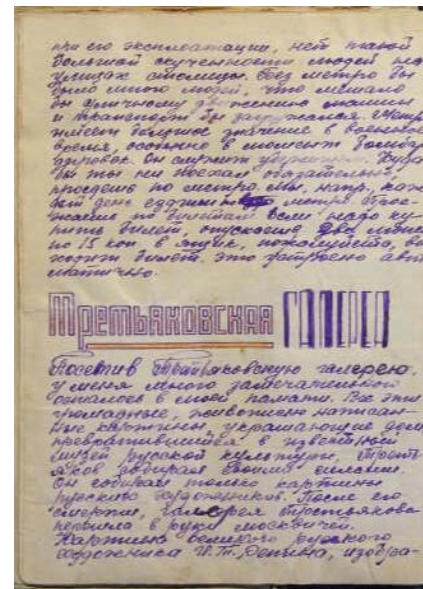 при его эксплоатации, нет такой
большой скученности людей на
улицах столицы. Без метро бы
было много людей, что мешало
бы уличному движению машин
и транспорт бы загружался. Метро
имеет большое значение в военное
время, особенно в момент бомбар
дировок. Он служит убежищем. Куда
бы ты ни поехал обязательно
проедешь по метро. Мы, напр., каж
дый день ездили метро. Прое-
жание по билетам. Если надо ку-
пить билет, опускаешь два
по 15 коп. в ящик, пожалуйста, вы
ходит билет. Это устроено авто
матично.
Третьяковская ГАЛЕРЕЯ
Посетив Третьяковскую галерею,
у меня много замечательного
осталось в моей памяти. Все эти
громадные, живописно написан-
ные картины, украшающие дом
превратившийся в известный
музей русской культуры, Треть
яков собирал своими силами.
Он собирал только картины
русских художников. После его
смерти, галерея Третьякова
перешла в руки москвичей.
Картина великого русского
художника И.Т. Репина, изобра-